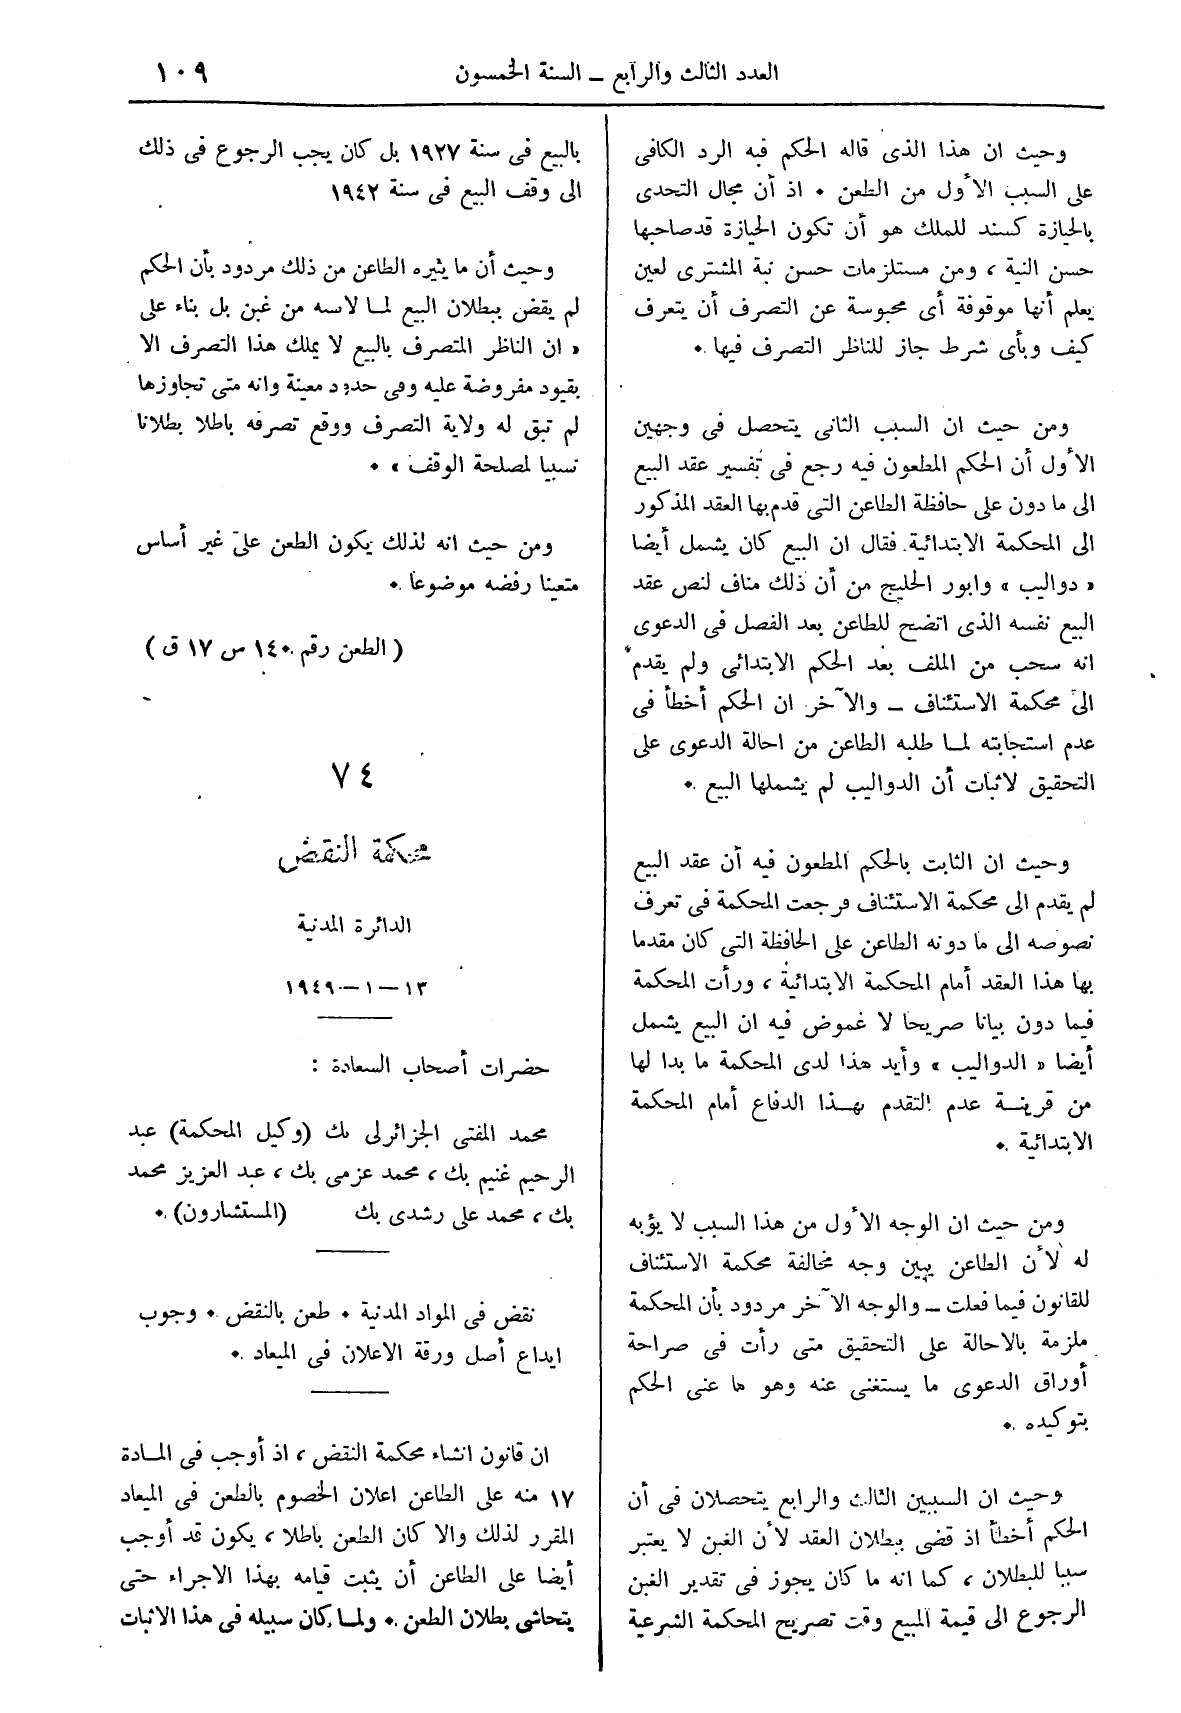 العدد الثالث والرابع – السنة الخمسون
١٠٩
وحيث ان هذا الذى قاله الحكم فيه الرد الكافى
على السبب الأول من الطعن ٠ اذ أن مجال التحدى
بالحيازة كسند للملك هو أن تكون الحيازة قدصاحبها
حسن النية ، ومن مستلزمات حسن نية المشترى لعين
يعلم أنها موقوفة أى محبوسة عن التصرف أن يتعرف
كيف وبأى شرط جاز للناظر التصرف فيها ٠
ومن حيث ان السبب الثانى يتحصل فى وجهين
الأول أن الحكم المطعون فيه رجع فى تفسير عقد البيع
الى ما دون على حافظة الطاعن التى قدم بها العقد المذكور
الى المحكمة الابتدائية فقال ان البيع كان يشمل أيضا
« دواليب » وابور الحليج من أن ذلك مناف لنص عقد
البيع نفسه الذى اتضح للطاعن بعد الفصل فى الدعوى
انه سحب من الملف بعد الحكم الابتدائى ولم يقدم
الى محكمة الاستئناف – والآخر ان الحكم أخطأ فى
عدم استجابته لما طلبه الطاعن من احالة الدعوى على
التحقيق لاثبات أن الدواليب لم يشملها البيع ٠
وحيث ان الثابت بالحكم المطعون فيه أن عقد البيع
لم يقدم الى محكمة الاستئناف فرجعت المحكمة فى تعرف
نصوصه الى ما دونه الطاعن على الحافظة التى كان مقدما
بها هذا العقد أمام المحكمة الابتدائية ، ورأت المحكمة
فيما دون بيانا صريحا لا غموض فيه ان البيع يشمل
أيضا « الدواليب » وأيد هذا لدى المحكمة ما بدا لها
من قرينة عدم التقدم بهذا الدفاع أمام المحكمة
الابتدائية ٠
ومن حيث ان الوجه الأول من هذا السبب لا يؤبه
له لأن الطاعن يبين وجه مخالفة محكمة الاستئناف
للقانون فيما فعلت – والوجه الآخر مردود بأن المحكمة
ملزمة بالاحالة على التحقيق متى رأت فى صراحة
أوراق الدعوى ما يستغنى عنه وهو ما عنى الحكم
بتوكيده ٠
وحيث ان السببين الثالث والرابع يتحصلان فى أن
الحكم أخطأ اذ قضى ببطلان العقد لأن الغبن لا يعتبر
سببا للبطلان ، كما انه ما كان يجوز فى تقدير الغبن
الرجوع الى قيمة المبيع وقت تصريح المحكمة الشرعية
بالبيع فى سنة ١٩٢٧ بل كان يجب الرجوع فى ذلك
الى وقف البيع فى سنة ١٩٤٢
وحيث أن ما يثيره الطاعن من ذلك مردود بأن الحكم
لم يقض ببطلان البيع لما لابسه من غبن بل بناء على
« ان الناظر المتصرف بالبيع لا يملك هذا التصرف الا
بقيود مفروضة عليه وفى حدود معينة وانه متى تجاوزها
لم تبق له ولاية التصرف ووقع تصرفه باطلا بطلانا
نسبيا لمصلحة الوقف » ٠
ومن حيث انه لذلك يكون الطعن على غير أساس
متعينا رفضه موضوعا ٠
( الطعن رقم ١٤٠ س ١٧ ق )
٧٤
محكمة النقض
الدائرة المدنية
١٣ – ١ – ١٩٤٩
حضرات أصحاب السعادة :
محمد المفتى الجزائرلى بك (وكيل المحكمة) عبد
الرحيم غنيم بك ، محمد عزمى بك ، عبد العزيز محمد
بك ، محمد على رشدى بك (المستشارون) ٠
نقض فى المواد المدنية ٠ طعن بالنقض ٠ وجوب
ايداع أصل ورقة الاعلان فى الميعاد ٠
ان قانون انشاء محكمة النقض ، اذ أوجب فى المادة
١٧ منه على الطاعن اعلان الخصوم بالطعن فى الميعاد
المقرر لذلك والا كان الطعن باطلا ، يكون قد أوجب
أيضا على الطاعن أن يثبت قيامه بهذا الاجراء حتى
يتحاشى بطلان الطعن ٠ ولما كان سبيله فى هذا الاثبات